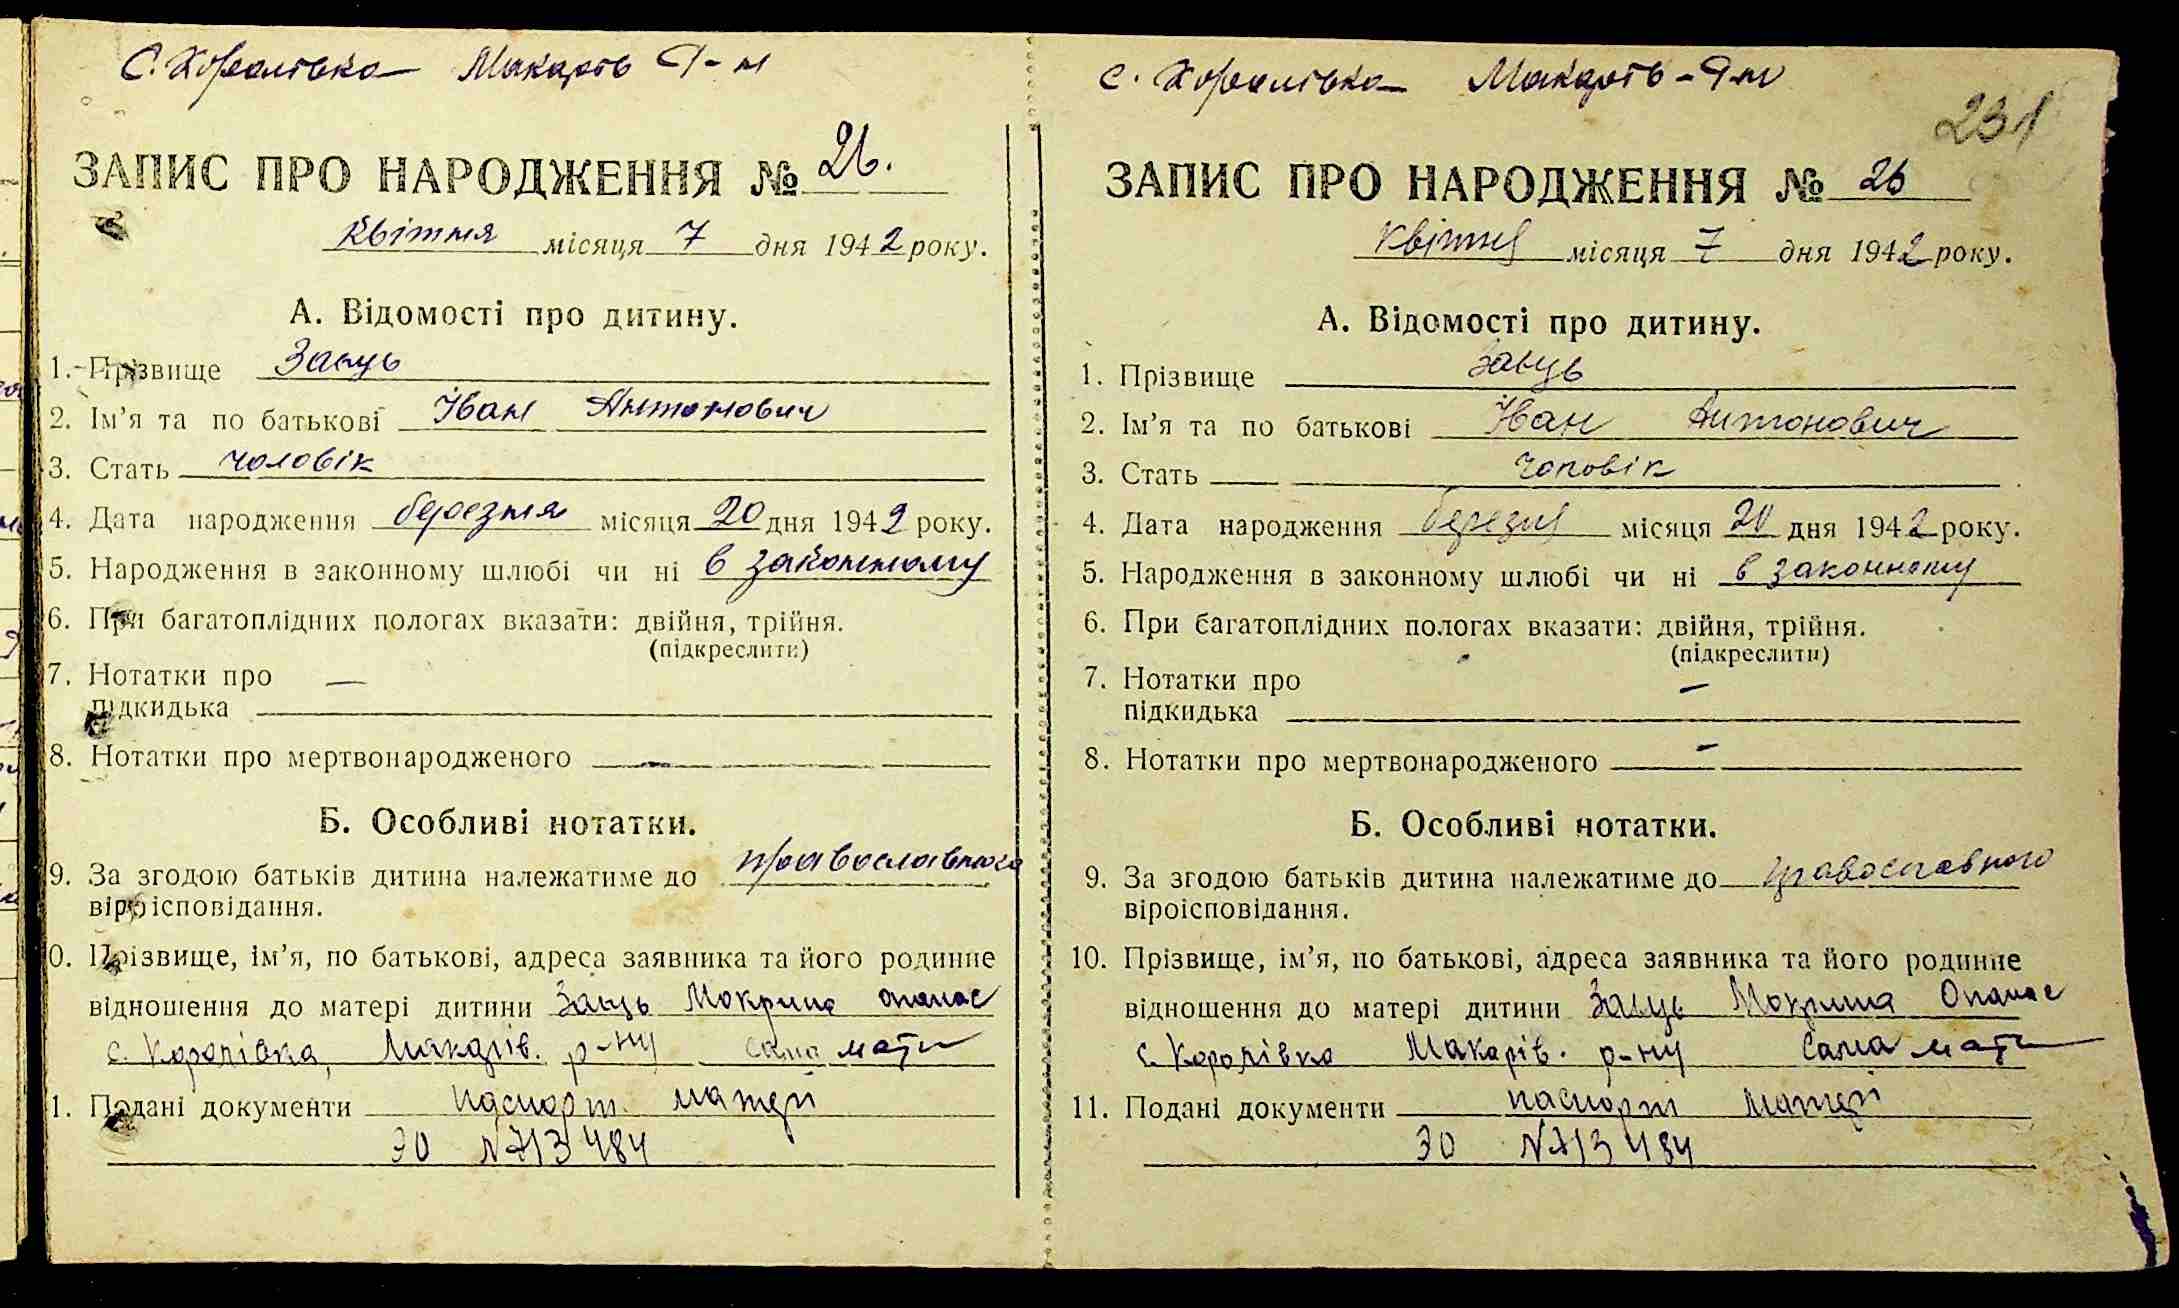 с. Королівка Макарів р-н
ЗАПИС ПРО НАРОДЖЕННЯ № 26.
Квітня місяця 7 дня 1942 року.
А. Відомості про дитину.
1. Прізвище Заєць
2. Ім'я та по батькові Іван Антонович
3. Стать чоловік
4. Дата народження березня місяця 20 дня 1942 року.
5. Народження в законному шлюбі чи ні в законному
6. При багатоплідних пологах вказати: двійня, трійня.
(підкреслити)
7. Нотатки про —
підкидька
8. Нотатки про мертвонародженого —
Б. Особливі нотатки.
9. За згодою батьків дитина належатиме до православного
віроісповідання.
0. Прізвище, ім'я, по батькові, адреса заявника та його родинне
відношення до матері дитини Заєць Мокрина Опанас
с. Королівка, Макарів. р-ну сама мати
1. Подані документи паспорт матері
ЭО №713484
с. Королівка Макарів - р-н
231
ЗАПИС ПРО НАРОДЖЕННЯ № 26
Квітня місяця 7 дня 1942 року.
А. Відомості про дитину.
1. Прізвище Заєць
2. Ім'я та по батькові Іван Антонович
3. Стать чоловік
4. Дата народження березня місяця 20 дня 1942 року.
5. Народження в законному шлюбі чи ні в законному
6. При багатоплідних пологах вказати: двійня, трійня.
(підкреслити)
7. Нотатки про —
підкидька
8. Нотатки про мертвонародженого —
Б. Особливі нотатки.
9. За згодою батьків дитина належатиме до православного
віроісповідання.
10. Прізвище, ім'я, по батькові, адреса заявника та його родинне
відношення до матері дитини Заєць Мокрина Опанас
с. Королівка Макарів. р-ну сама мати
11. Подані документи паспорт матері
ЭО №713484